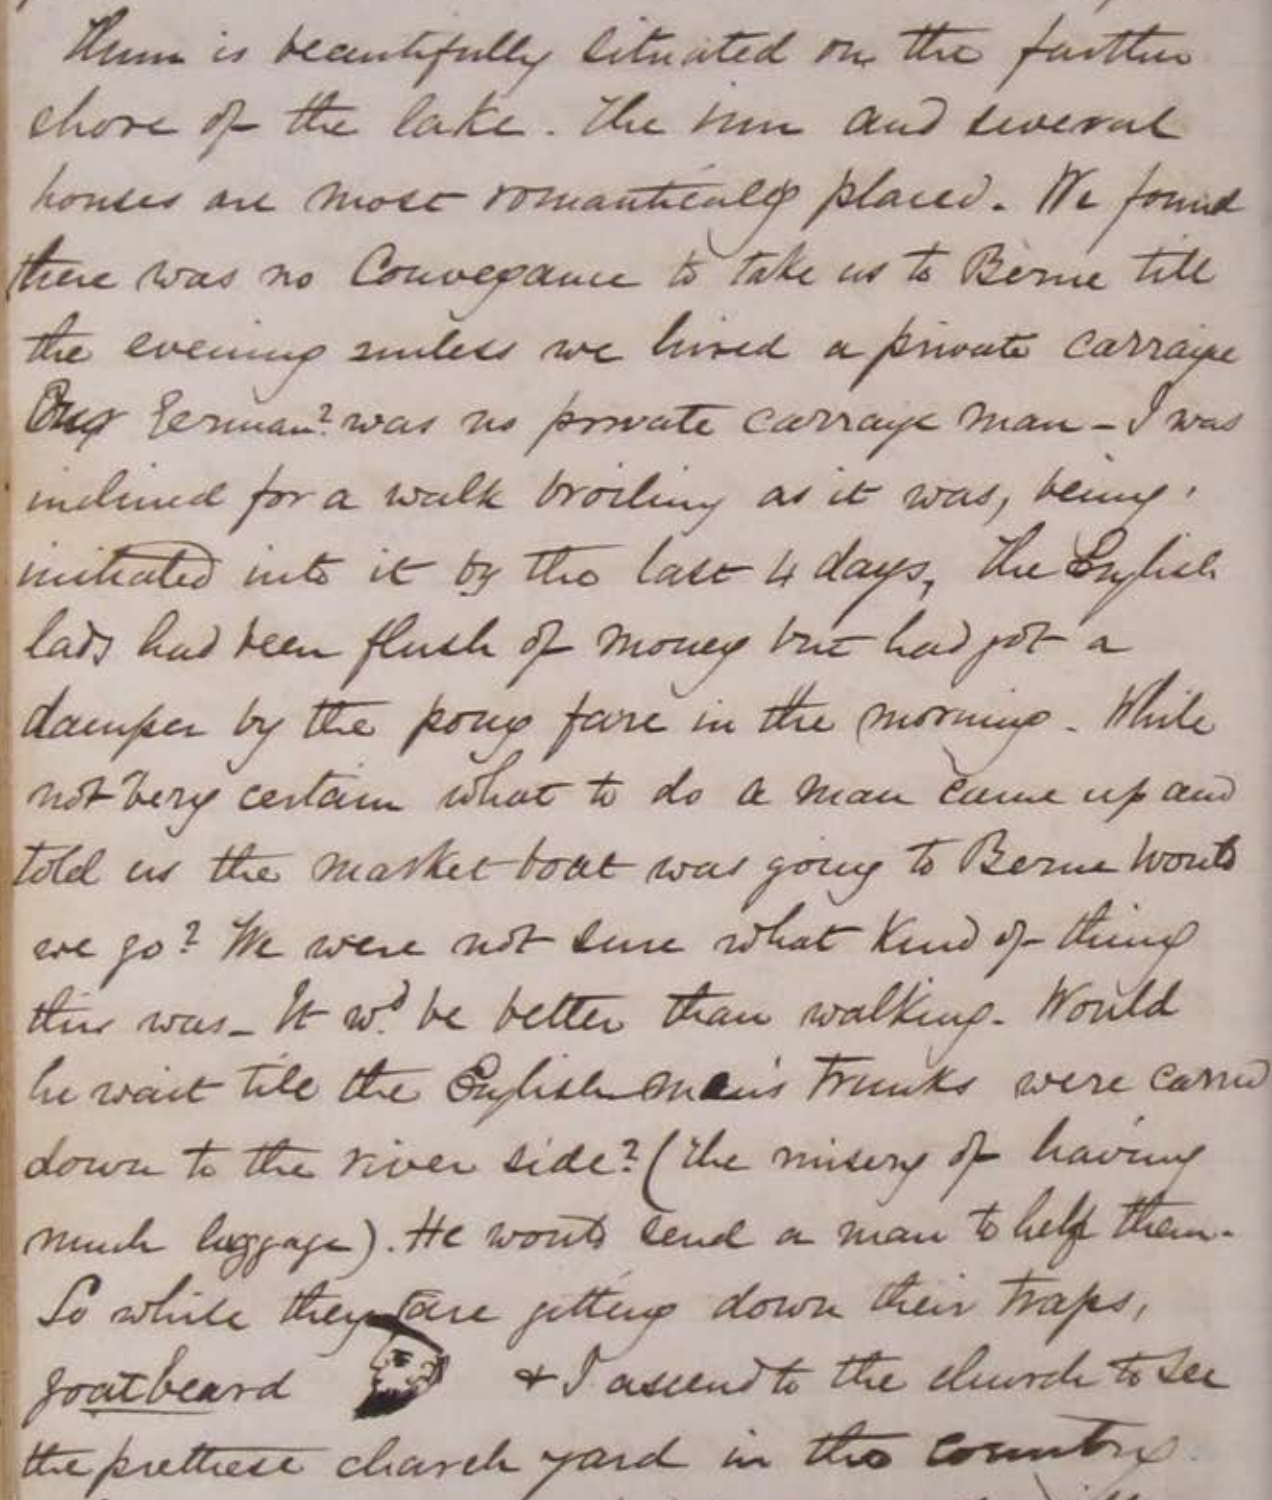 Thun is beautifully situated on the further
shore of the lake. The inn and several
houses are most romantically placed. We found
there was no Conveyance to take us to Berne till
the evening unless we hired a private carraige
Our German? was no private carraige man - I was
inclined for a walk broiling as it was, being
initiated into it by the last 4 days, The English
lads had been flush of money but had got a
damper by the pony fare in the morning. While
not very certain what to do a man came up and
told us the market boat was going to Berne Would
we go? We were not sure what Kind of thing
this was - It wd. be better than walking. Would
he wait till the English men's Trunks were carried
down to the river side? (The misery of having
much luggage). He would send a man to help them.
So while they are getting down their Traps,
goatbeard & I ascend to the church to see
the prettiest church yard in the country